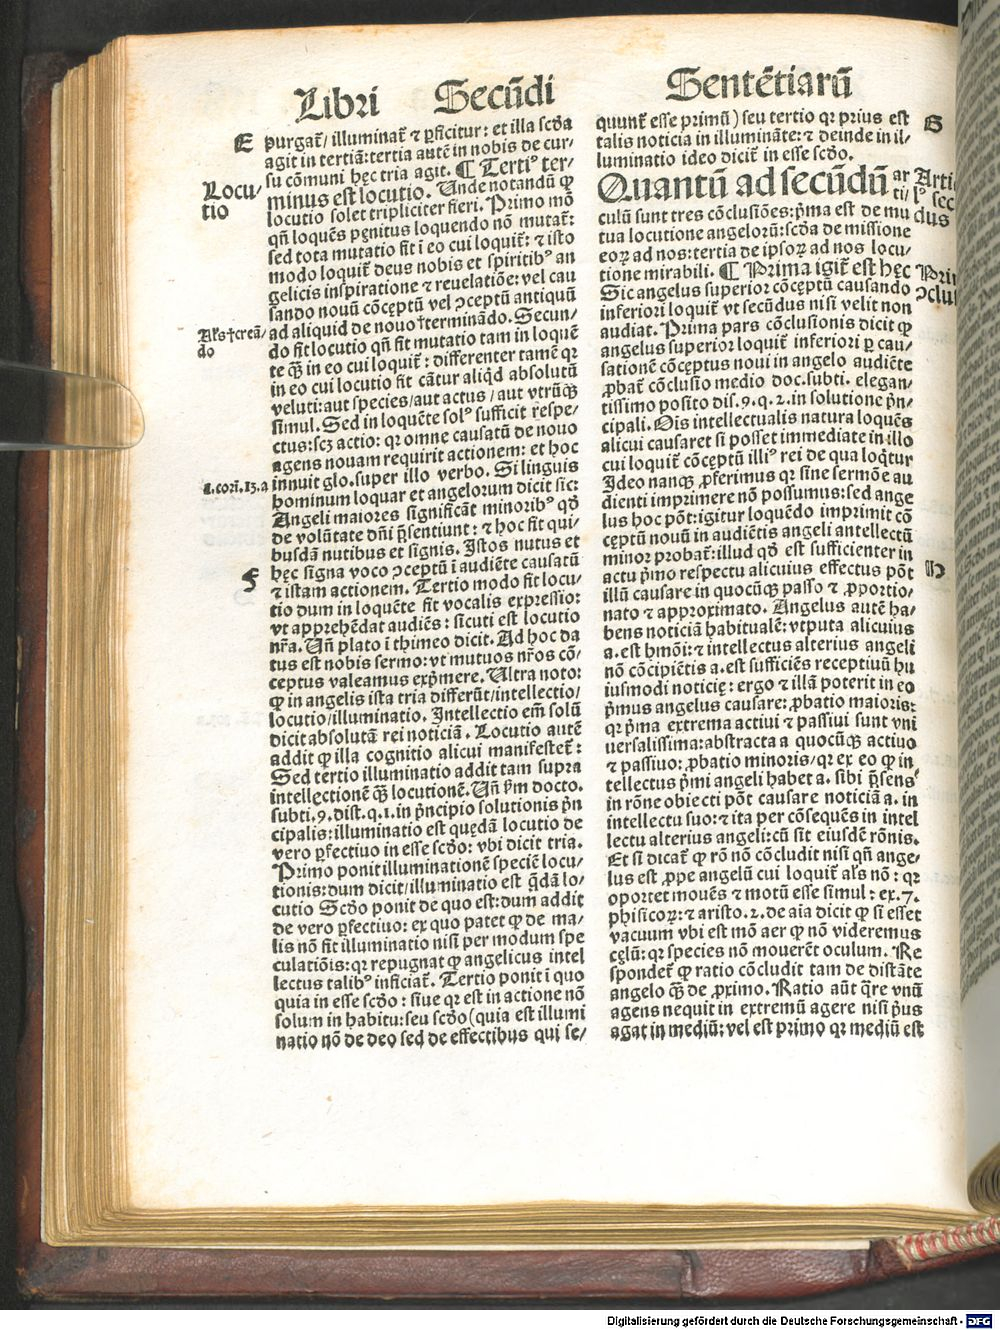 Libri Secūdi Sentētiarū
E
purgat̄/ illuminat̄ ⁊ ꝑficitur: et illa scḋa
agit in tertiā: tertia autē in nobis de cur-
su cōmuni hęc tria agit. ¶ Tertiꝰ ter-
Locu-
tio
minus est locutio. Unde notandū ꝙ
locutio solet tripliciter fieri. Primo mō
qn̄ loquēs pęnitus loquendo nō mutat̄:
sed tota mutatio fit ī eo cui loquit̄: ⁊ isto
modo loquit̄ deus nobis et spiritibꝰ an
gelicis inspiratione ⁊ reuelatiōe: vel cau
sando nouū cōcęptū vel ↄceptū antiquū
Al's †creā/
do
ad aliquid de nouo †terminādo. Secun/
do fit locutio qn̄ fit mutatio tam in loquē
te q̄ꝫ in eo cui loquit̄: differenter tamē qꝛ
in eo cui locutio fit cātur aliqḋ absolutū
veluti: aut species/ aut actus/ aut vtrūqꝫ
simul. Sed in loquēte solꝰ sufficit respe/
ctus: scꝫ actio: qꝛ omne causatū de nouo
agens nouam requirit actionem: et hoc
1. cori. 13. a
innuit glo. super illo verbo. Si linguis
hominum loquar et angelorum dicit sic:
Angeli maiores significāt minoribꝰ qḋ
de volūtate dn̄i p̄sentiunt: ⁊ hoc fit qui/
busdā nutibus et signis. Istos nutus et
F
hęc signa voco ↄceptū ī audiēte causatū
⁊ istam actionem. Tertio modo fit locu/
tio dum in loquēte fit vocalis expressio:
vt apprehēdat audiēs: sicuti est locutio
nr̄a. Un̄ plato ī thimeo dicit. Ad hoc da
tus est nobis sermo: vt mutuos nr̄os cō/
ceptus valeamus exp̄mere. Ultra noto:
ꝙ in angelis ista tria differūt/ intellectio/
locutio/ illuminatio. Intellectio em̄ solū
dicit absolutā rei noticiā. Locutio autē
addit ꝙ illa cognitio alicui manifestet̄:
Sed tertio illuminatio addit tam supra
intellectionē q̄ꝫ locutionē. Un̄ ẜm docto.
subti. 9. dist. q. 1. in p̄ncipio solutionis p̄n
cipalis: illuminatio est quędā locutio de
vero ꝑfectiuo in esse scḋo: vbi dicit tria.
Primo ponit illuminationē speciē locu/
tionis: dum dicit/ illuminatio est q̄dā lo/
cutio Scḋo ponit de quo est: dum addit
de vero ꝑfectiuo: ex quo patet ꝙ de ma/
lis nō fit illuminatio nisi per modum spe
culatiōis: qꝛ repugnat ꝙ angelicus intel
lectus talibꝰ inficiat̄. Tertio ponit ī quo
quia in esse scḋo: siue qꝛ est in actione nō
solum in habitu: seu scḋo (quia est illumi
natio nō de deo sed de effectibus qui se/
quunt̄ esse primū) seu tertio qꝛ prius est
G
talis noticia in illumināte: ⁊ deinde in il/
luminatio ideo dicit̄ in esse scḋo.
Quantū ad secūdū ar
ti/
Arti
lꝰ sec
dus
culū sunt tres cōclusiōes: p̄ma est de mu
tua locutione angelorū: scḋa de missione
eoꝝ ad nos: tertia de ipsoꝝ ad nos locu/
tione mirabili. ¶ Prima igit̄ est hęc
Pri
ↄclu
Sic angelus superior cōcęptū causando
inferiori loquit̄ vt secūdus nisi velit non
audiat. Prima pars cōclusionis dicit ꝙ
angelus superior loquit̄ inferiori ꝑ cau/
sationē cōcęptus noui in angelo audiēte
ꝓbat̄ cōclusio medio doc. subti. elegan/
tissimo posito dis. 9. q. 2. in solutione p̄n/
cipali. Ois intellectualis natura loquēs
alicui causaret si posset immediate in illo
cui loquit̄ cōcęptū illiꝰ rei de qua loq̄tur
Ideo nanqꝫ ꝓferimus qꝛ sine sermōe au
dienti imprimere nō possumus: sed ange
lus hoc pōt: igitur loquēdo imprimit cō
cęptū nouū in audiētis angeli āntellectū
minor probat̄: illud qḋ est sufficienter in
H
actu p̄mo respectu alicuius effectus pōt
illū causare in quocūqꝫ passo ⁊ ꝓportio/
nato ⁊ approximato. Angelus autē ha/
bens noticiā habitualē: vtputa alicuius
a. est hmōi: ⁊ intellectus alterius angeli
nō cōcipiētis a. est sufficiēs receptiuū hu
iusmodi noticię: ergo ⁊ illā poterit in eo
p̄mus angelus causare: ꝓbatio maioris:
qꝛ p̄ma extrema actiui ⁊ passiui sunt vni
uersalissima: abstracta a quocūqꝫ actiuo
⁊ passiuo: ꝓbatio minoris/ qꝛ ex eo ꝙ in
tellectus p̄mi angeli habet a. sibi p̄sensꝰ
in rōne obiecti pōt causare noticiā a. in
intellectu suo: ⁊ ita per cōsequēs in intel
lectu alterius angeli: cū sit eiusdē rōnis.
Et si dicat̄ ꝙ rō nō cōcludit nisi qn̄ ange/
lus est ꝓpe angelū cui loquit̄ al's nō: qꝛ
oportet mouēs ⁊ motū esse simul: ex. 7.
phisicoꝝ: ⁊ aristo. 2. de aīa dicit ꝙ si esset
vacuum vbi est mō aer ꝙ nō videremus
cęlū: qꝛ species nō mouerēt oculum. Re
spondet̄ ꝙ ratio cōcludit tam de distāte
angelo q̄ꝫ de ꝓximo. Ratio aūt q̄re vnū
agens nequit in extremū agere nisi p̄us
agat in mediū: vel est primo qꝛ mediū est
Digitalisierung gefördert durch die Deutsche Forschungsgemeinschaft - DFG